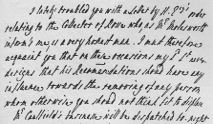 I lately troubled you with a letter by H. Psy's order
relating to the Collector of Stown who is Mr Molesworth
informs me is a very honest man. I must therefore
acquaint you that on these occasions my Ld Lt never
designs that his Recommendations should have any
influence towards the removing of any person
whom otherwise you should not think fit to displace
Mr Caulfeild's business will be dispatched to night